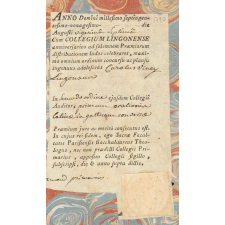 ANNO Domini millesimo septingen-
tesimo-nonagesimo- die
Augusti vigesima septima
Cùm COLLEGIUM LINGONENSE
anniversarios ad solemnem Præmiorum
distributionem ludos celebraret, maxi-
ma omnium ordinum concursu ac plausu
ingenuus adolescens Carolus
Lingonæus
In secundo ordine ejusdem Collegii
Auditor, primum orationis
latinæ in gallicum conversæ
Præmium jure ac merito consecutus est.
In cujus rei fidem, ego Sacræ Facul-
tatis Parisiensis Baccalaureus Theo-
logus, nec non prædicti Collegii Pri-
marius, apposito Collegii sigillo,
subscripsi, die & anno supra dictis.
primarius